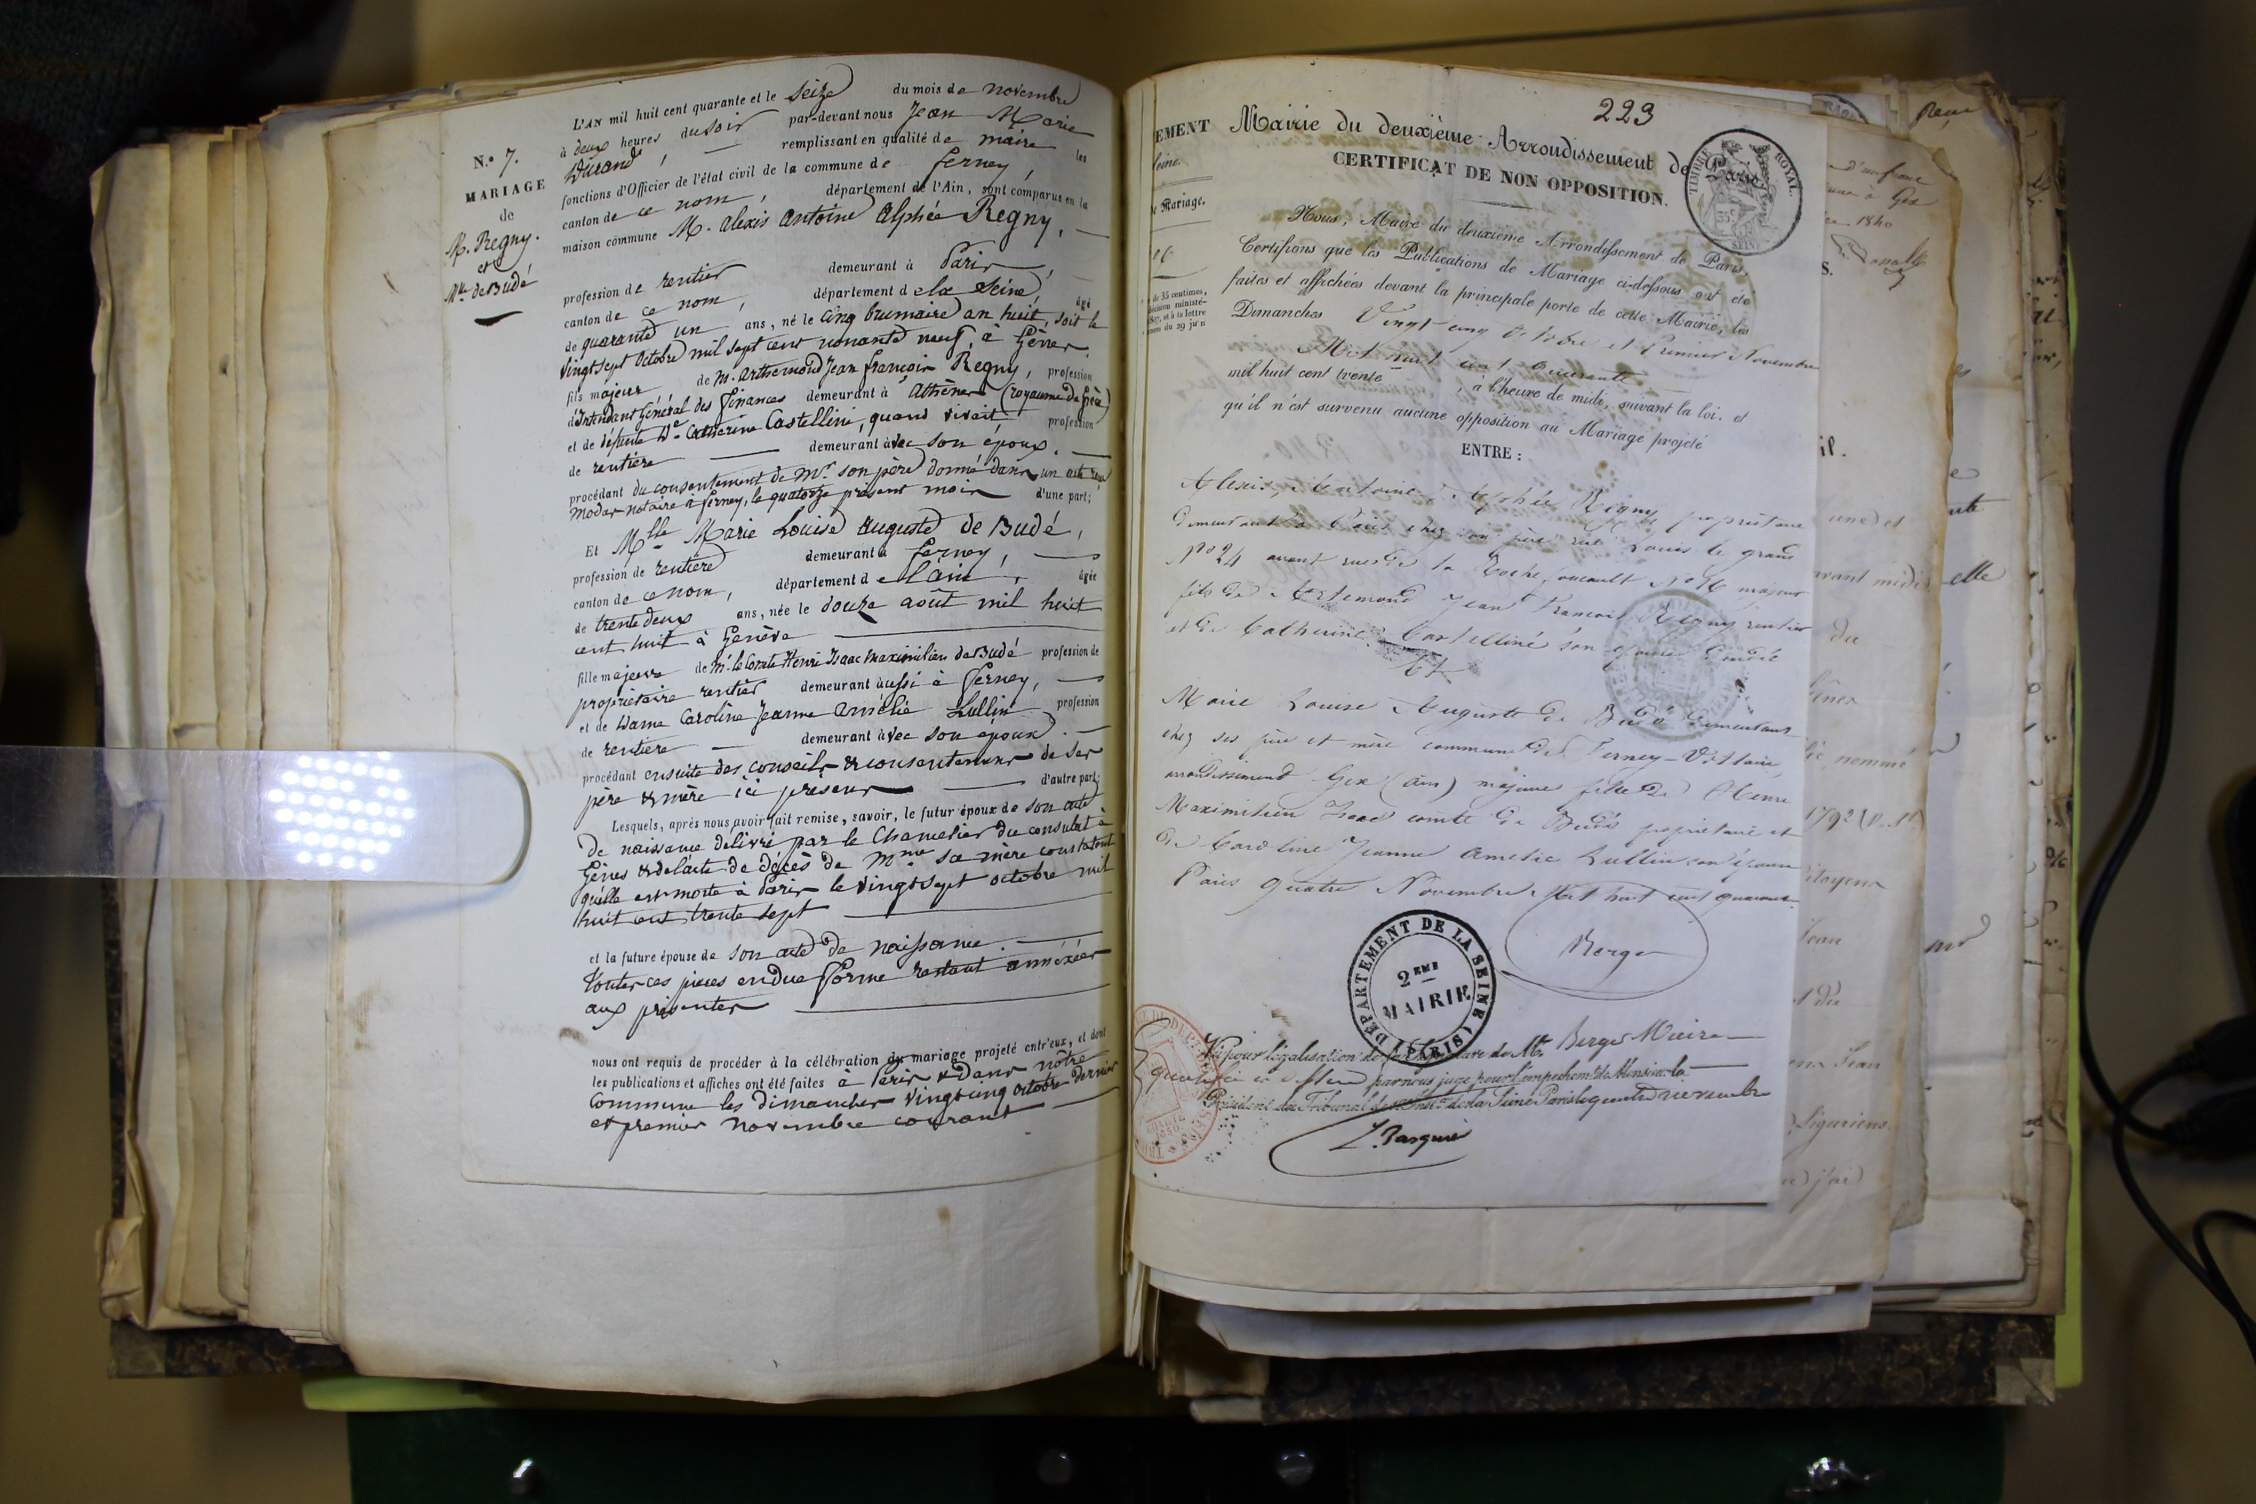 N.° 7.
MARIAGE
de
M. Regny.
et
Mlle de Budé
L'AN mil huit cent quarante et le seize du mois de novembre
à deux heures du soir par-devant nous Jean Marie
Durand, remplissant en qualité de maire les
fonctions d'Officier de l'état civil de la commune de ferney,
canton de ce nom, département de l'Ain, sont comparus en la
maison commune M. alexis antoine alphée Regny,
profession de rentier demeurant à Paris,
canton de ce nom, département de la Seine, âgé
de quarante un ans, né le cinq brumaire an huit, soit le
vingt sept octobre mil sept cent nonante neuf, à Gênes.
fils majeur de M. arthemond Jean françois Regny, profession
d'Intendant Général des finances demeurant à athènes (royaume de grèce)
et de défunte De. Catherine Castellini, quand vivait profession
de rentière demeurant avec son époux.
procédant du consentement de Mr. son père donné dans un acte reçu
Modas notaire à ferney, le quatorze présent mois d'une part;
Et Mlle Marie Louise auguste de Budé,
profession de rentière demeurant à ferney,
canton de ce nom, département de l'ain, âgée
de trente deux ans, née le douze août mil huit
cent huit à Genève
fille majeure de Mr. le Comte Henri Isaac Maximilien de Budé profession de
propriétaire rentier demeurant aussi à ferney,
et de Dame Caroline Jeanne amélie Lullin profession
de rentière demeurant avec son époux.
procédant ensuite des conseils & consentemens de ses
père & mère ici présens d'autre part;
Lesquels, après nous avoir fait remise, savoir, le futur époux de son acte
de naissance délivré par le Chancelier du consulat à
Gênes & de l'acte de décès de Mme sa mère constatant
qu'elle est morte à Paris le vingt sept octobre mil
huit cent trente sept
et la future épouse de son acte de naissance.
toutes ces pièces en due forme restant annéxées
aux présentes
nous ont requis de procéder à la célébration du mariage projeté entr'eux, et dont
les publications et affiches ont été faites à Paris & dans nôtre
commune les dimanches vingt cinq octobre dernier
et premier novembre courant
223
EMENT
Seine.
de Mariage.
Mairie du deuxième Arrondissement de Paris
CERTIFICAT DE NON OPPOSITION.
TIMBRE ROYAL.
35 c
SEINE
Nous, Maire du deuxième Arrondissement de Paris,
Certifions que les Publications de Mariage ci-dessous ont été
faites et affichées devant la principale porte de cette Mairie, les
Dimanches Vingt cinq octobre et Premier Novembre
Mil huit cent quarante
mil huit cent trente , à l'heure de midi, suivant la loi. et
qu'il n'est survenu aucune opposition au Mariage projeté
ENTRE :
Alexis, Antoine, Alphée Regny propriétaire
demeurant à Paris chez son père rue Louis le grand
No 24 avant rue de la Rochefoucault No 16 majeur
fils de Artemond Jean François Regny rentier
et de Catherine Castelliné son épouse décédée
Et
Marie Louise Auguste de Budé demeurant
chez ses père et mère commune de Ferney-Voltaire
arrondissement Gex (ain) majeure fille de Henri
Maximilien Isaac comte de Budé propriétaire et
de Caroline Jeanne Amelie Lullin son épouse
Paris quatre Novembre Mil huit cent quarante
Berger
DÉPARTEMENT DE LA SEINE (PARIS)
2EME
MAIRIE
Vu pour légalisation de la signature de Mr. Berger Maire
par nous juge pour l'empêchemt. de Monsieur le
Président du Tribunal de 1ere Inst.ce de la Seine Paris le quatre novembre